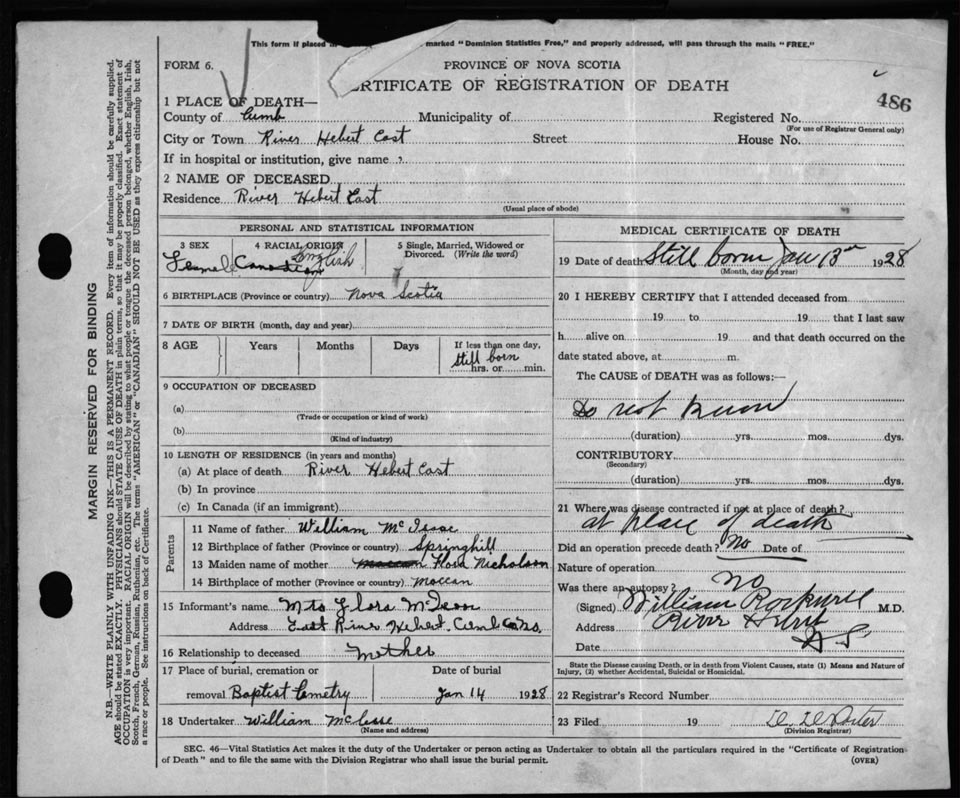 This form if placed in marked "Dominion Statistics Free," and properly addressed, will pass through the mails "FREE."
FORM 6.
PROVINCE OF NOVA SCOTIA
CERTIFICATE OF REGISTRATION OF DEATH
486
1 PLACE OF DEATH—
County of Cumb Municipality of Registered No.
(For use of Registrar General only)
City or Town River Hebert East Street House No.
If in hospital or institution, give name ?
2 NAME OF DECEASED
Residence River Hebert East
(Usual place of abode)
PERSONAL AND STATISTICAL INFORMATION
3 SEX 4 RACIAL ORIGIN 5 Single, Married, Widowed or Divorced. (Write the word)
Female Canadian English
6 BIRTHPLACE (Province or country) Nova Scotia
7 DATE OF BIRTH (month, day and year)
8 AGE Years Months Days If less than one day,
Still born
hrs. or min.
9 OCCUPATION OF DECEASED
(a)
(Trade or occupation or kind of work)
(b)
(Kind of industry)
10 LENGTH OF RESIDENCE (in years and months)
(a) At place of death River Hebert East
(b) In province
(c) In Canada (if an immigrant)
Parents
11 Name of father William McIsaac
12 Birthplace of father (Province or country) Springhill
13 Maiden name of mother Maccan Flora Nicholson
14 Birthplace of mother (Province or country) Maccan
15 Informant's name Mrs Flora
Address East River Hebert. Cumb Co NS.
16 Relationship to deceased Mother
17 Place of burial, cremation or Date of burial
removal Baptist Cemetry Jan 14 1928
18 Undertaker William
(Name and address)
MEDICAL CERTIFICATE OF DEATH
19 Date of death Still born Jan 13th 1928
(Month, day and year)
20 I HEREBY CERTIFY that I attended deceased from
19 to 19 that I last saw
h alive on 19 and that death occurred on the
date stated above, at m.
The CAUSE of DEATH was as follows:—
Do not know
(duration) yrs. mos. dys.
CONTRIBUTORY
(Secondary)
(duration) yrs. mos. dys.
21 Where was disease contracted if not at place of death?
at place of death
Did an operation precede death? No Date of
Nature of operation
Was there an autopsy? no
(Signed) William Rockwell M.D.
Address River Hebert
Date N S
State the Disease causing Death, or in death from Violent Causes, state (1) Means and Nature of
Injury, (2) whether Accidental, Suicidal or Homicidal.
22 Registrar's Record Number
23 Filed 19 Porter
(Division Registrar)
SEC. 46—Vital Statistics Act makes it the duty of the Undertaker or person acting as Undertaker to obtain all the particulars required in the "Certificate of Registration
of Death" and to file the same with the Division Registrar who shall issue the burial permit. (OVER)
MARGIN RESERVED FOR BINDING
N.B.—WRITE PLAINLY WITH UNFADING INK—THIS IS A PERMANENT RECORD. Every item of information should be carefully supplied.
AGE should be stated EXACTLY. PHYSICIANS should STATE CAUSE OF DEATH in plain terms, so that it may be properly classified. Exact statement of
OCCUPATION is very important. RACIAL ORIGIN will be described by stating to what people or tongue the deceased person belonged, whether English, Irish,
Scotch, French, German, Russian, Ruthenian, etc. The terms "AMERICAN" or "CANADIAN" SHOULD NOT BE USED as they express citizenship but not
a race or people. See instructions on back of Certificate.